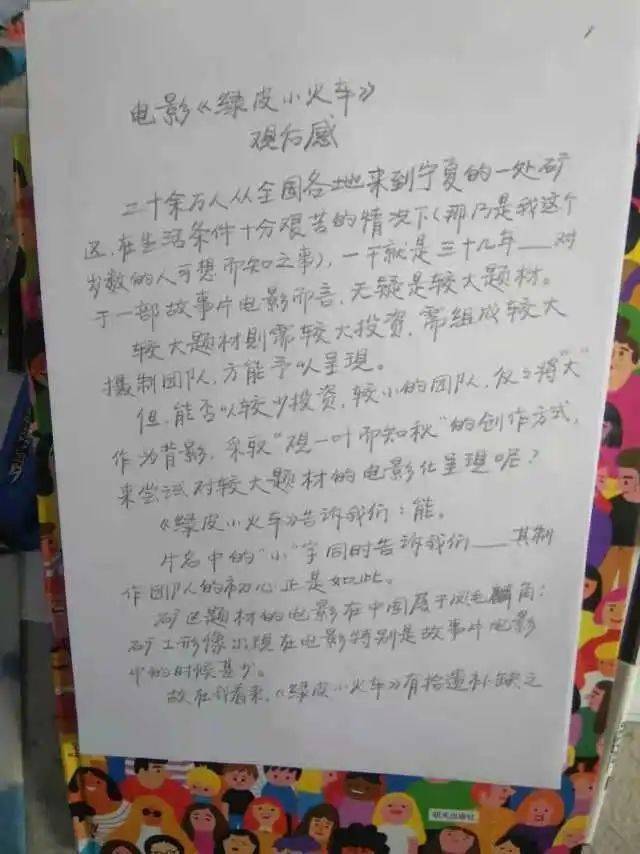 电影《绿皮小火车》
观后感
二十余万人从全国各地来到宁夏的一处矿
区，在生活条件十分艰苦的情况下（那乃是我这个
岁数的人可想而知之事），一干就是三十几年——对
于一部故事片电影而言，无疑是较大题材。
较大题材则需较大投资，需组成较大
摄制团队，方能予以呈现。
但，能否以较少投资，较小的团队，仅仅将“大”
作为背影，采取“观一叶而知秋”的创作方式，
来尝试对较大题材的电影化呈现呢？
《绿皮小火车》告诉我们：能。
片名中的“小”字同时告诉我们——其制
作团队的初心正是如此。
矿区题材的电影在中国属于凤毛麟角；
矿工形像出现在电影特别是故事片电影
中的时候甚少。
故在我看来，《绿皮小火车》有拾遗补缺之
明天出版社